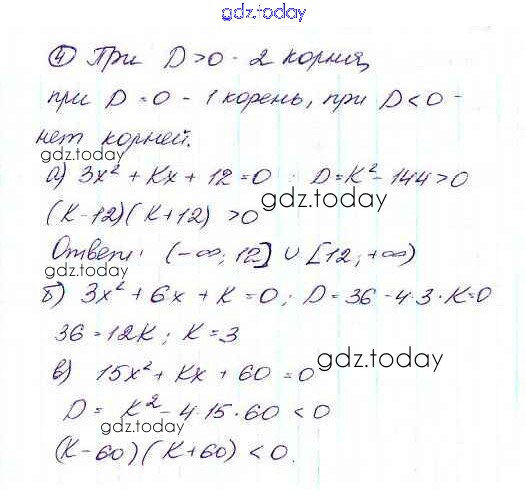 gdz.today
④ При D>0 - 2 корня,
при D = 0 - 1 корень, при D<0 -
нет корней.
gdz.today
а) 3x² + Kx + 12 = 0 : D = K² - 144 > 0
gdz.today
(K-12)(K+12) > 0
Ответ: (-∞; 12] ∪ [12; +∞)
gdz.today
б) 3x² + 6x + K = 0; D = 36 - 4·3·K = 0
36 = 12K; K = 3
gdz.today
в) 15x² + Kx + 60 = 0
D = K² - 4·15·60 < 0
gdz.today
(K-60)(K+60) < 0.